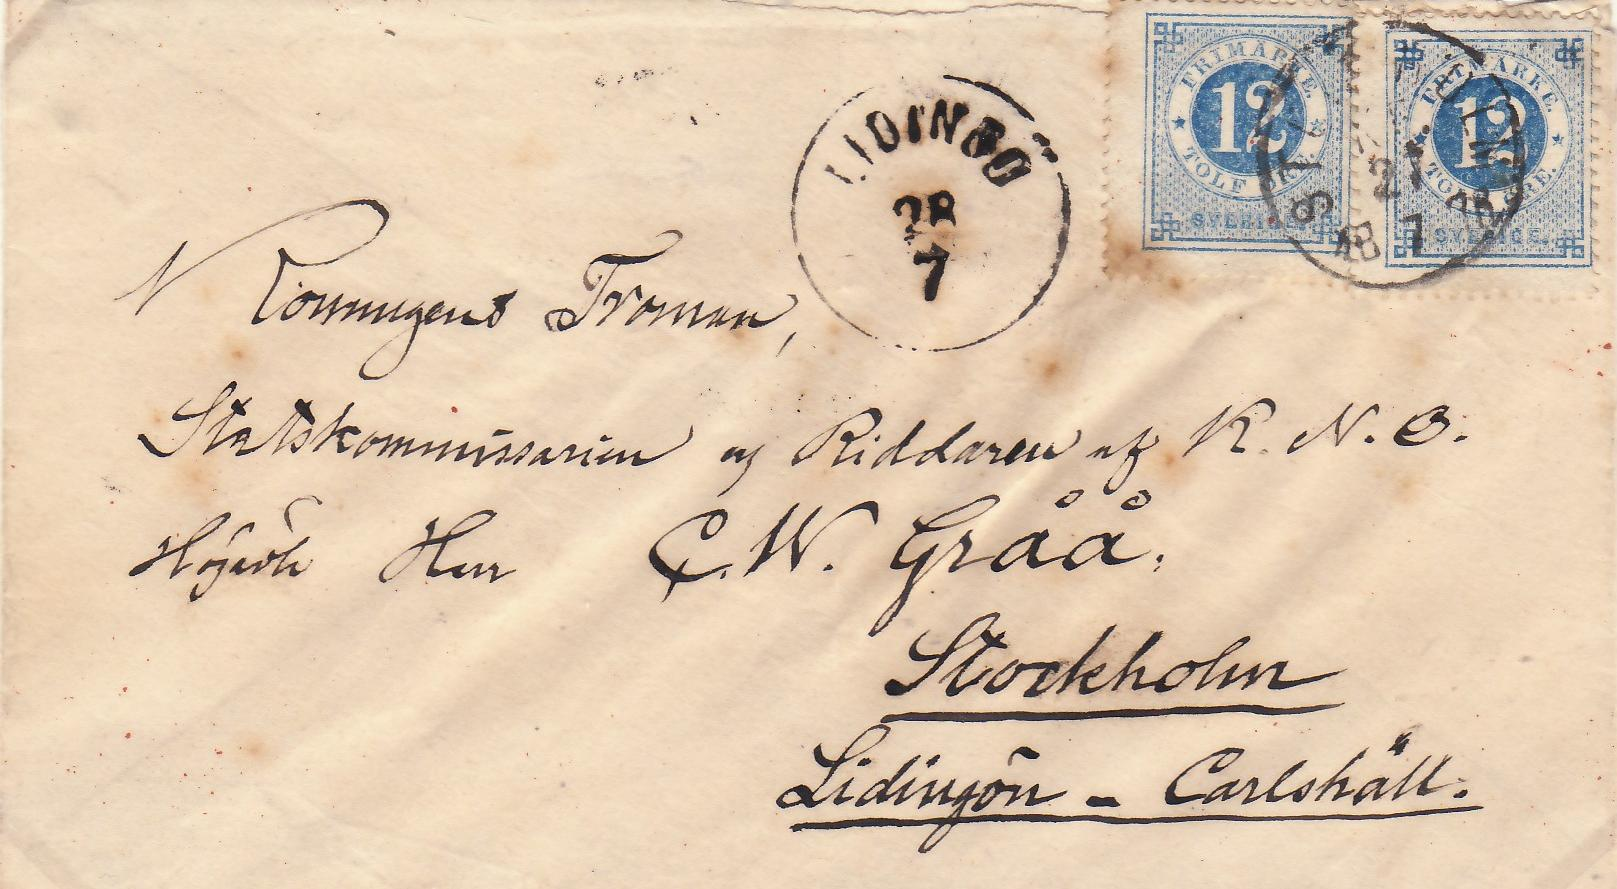 FRIMÄRKE.
12
TOLF ÖRE.
SVERIGE.
FRIMÄRKE.
12
TOLF ÖRE.
SVERIGE.
LIDINGÖ
28
7
Konungens Troman,
Statskommissarien og Riddaren af K. N. O.
Herr C. W. Gråå.
Stockholm
Lidingön - Carlshäll.